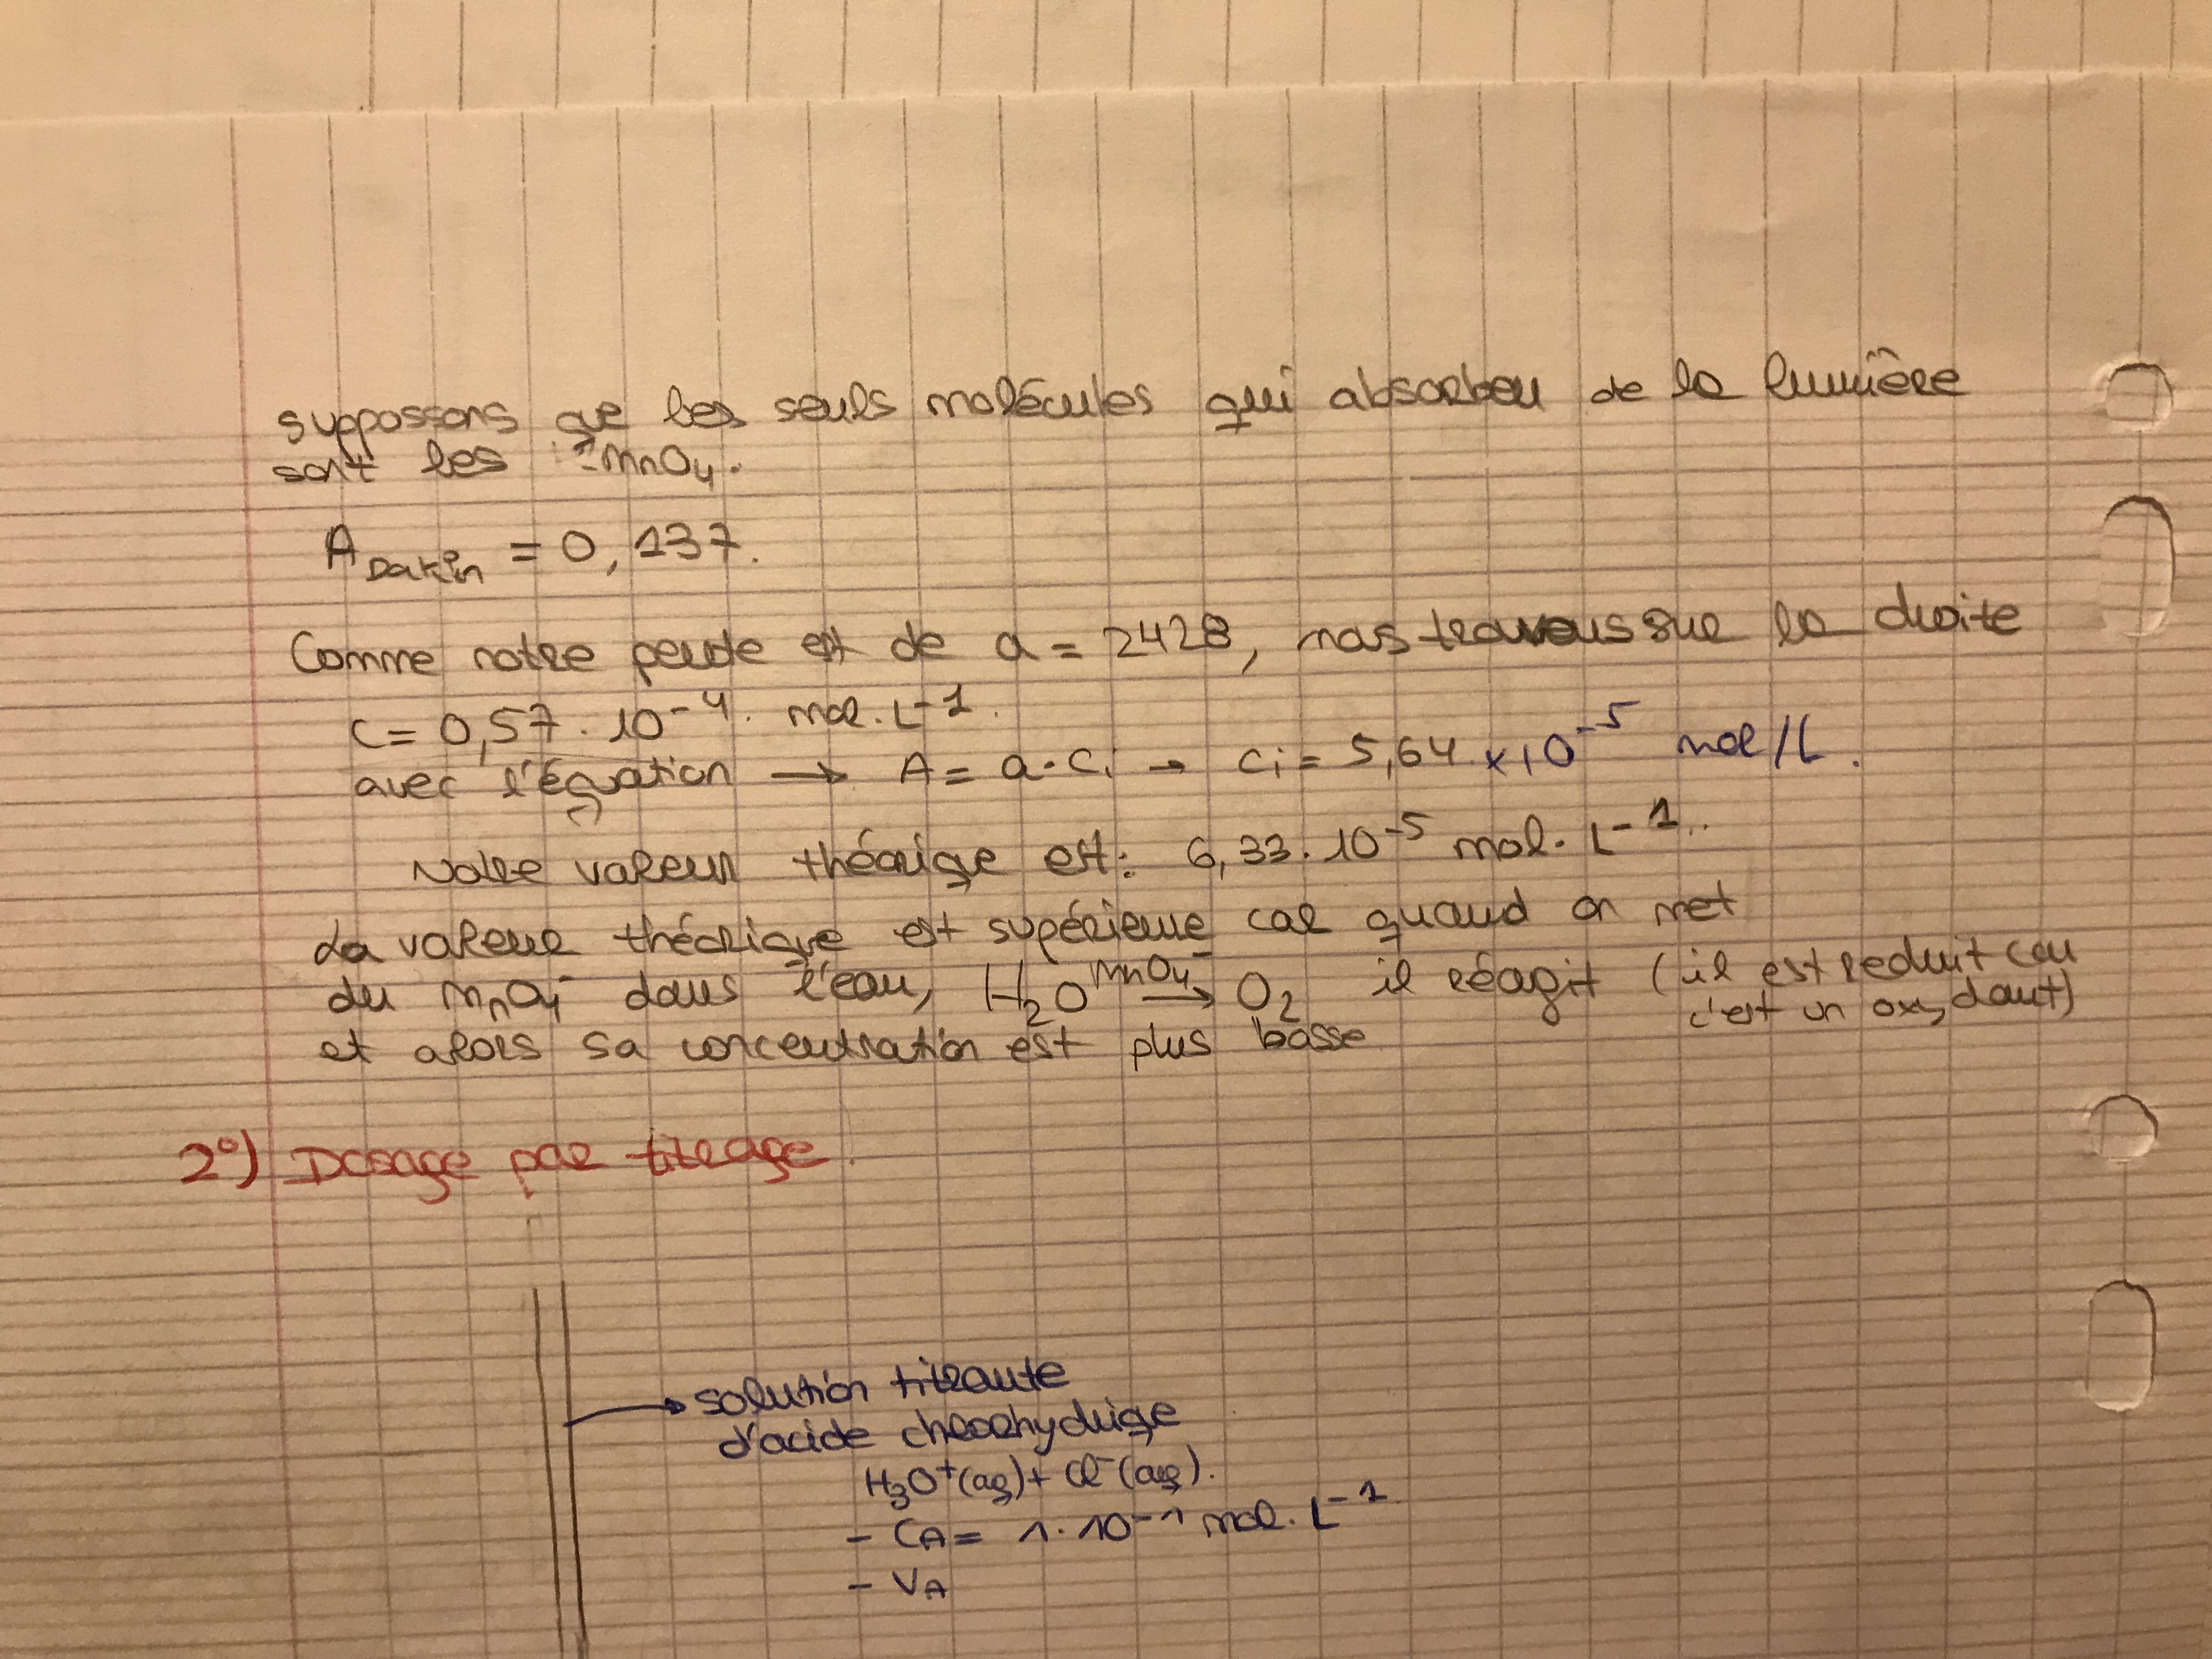 supposons que les seuls molécules qui absorbeu de la lumière
sont les : MnO4-.
A Dakin = 0,137.
Comme notre pente est de a = 2428, nous trouvons sur la droite
C = 0,57 · 10^-4 mol · L^-1.
avec l'équation → A = a · Ci → Ci = 5,64 × 10^-5 mol/L.
Notre valeur théorique est : 6,33 · 10^-5 mol · L^-1.
La valeur théorique est supérieure car quand on met
du MnO4- dans l'eau, H2O MnO4- → O2 il réagit (il est reduit car
c'est un oxydant)
et alors sa concentration est plus basse
2°) Dosage par titrage.
→ solution titrante
d'acide chlorhydrique
H3O+(aq) + Cl-(aq).
- CA = 1 · 10^-1 mol · L^-1
- VA